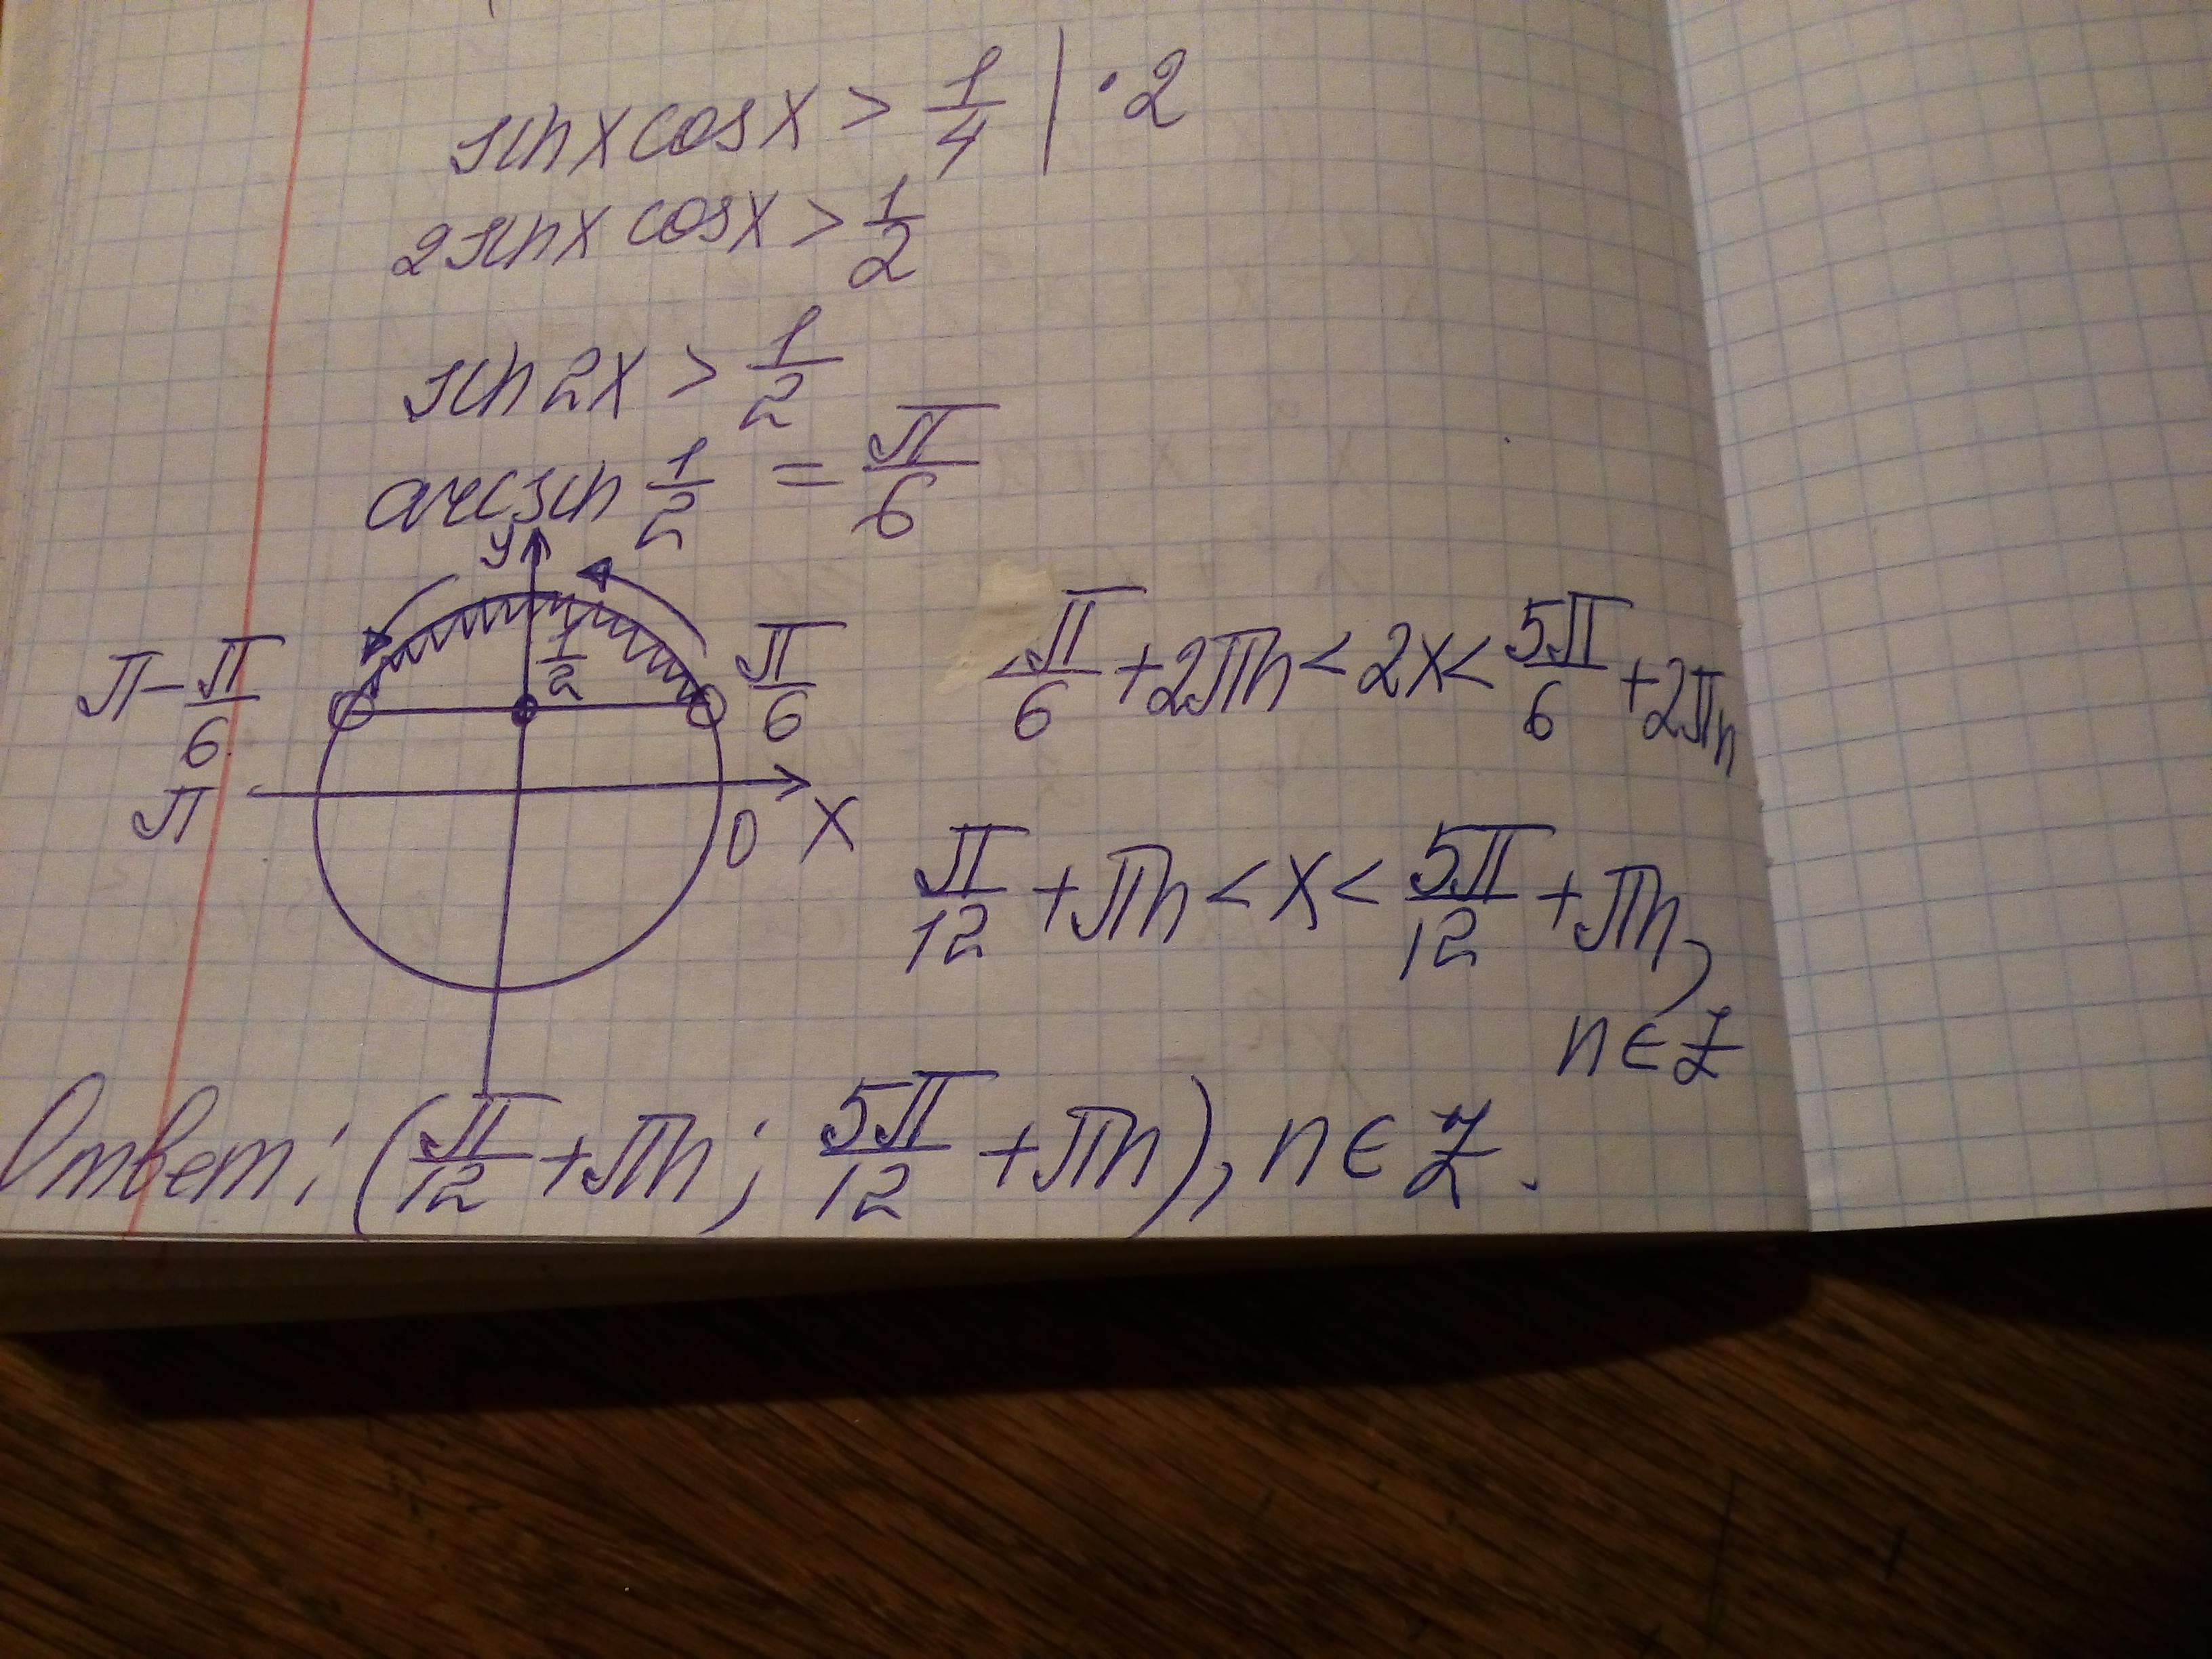 sin x cos x > 1/4 | · 2
2 sin x cos x > 1/2
sin 2x > 1/2
arcsin 1/2 = π/6
y
1/2
π - π/6
π/6
π
0
x
π/6 + 2πn < 2x < 5π/6 + 2πn
π/12 + πn < x < 5π/12 + πn,
n ∈ Z
Ответ: (π/12 + πn; 5π/12 + πn), n ∈ Z.